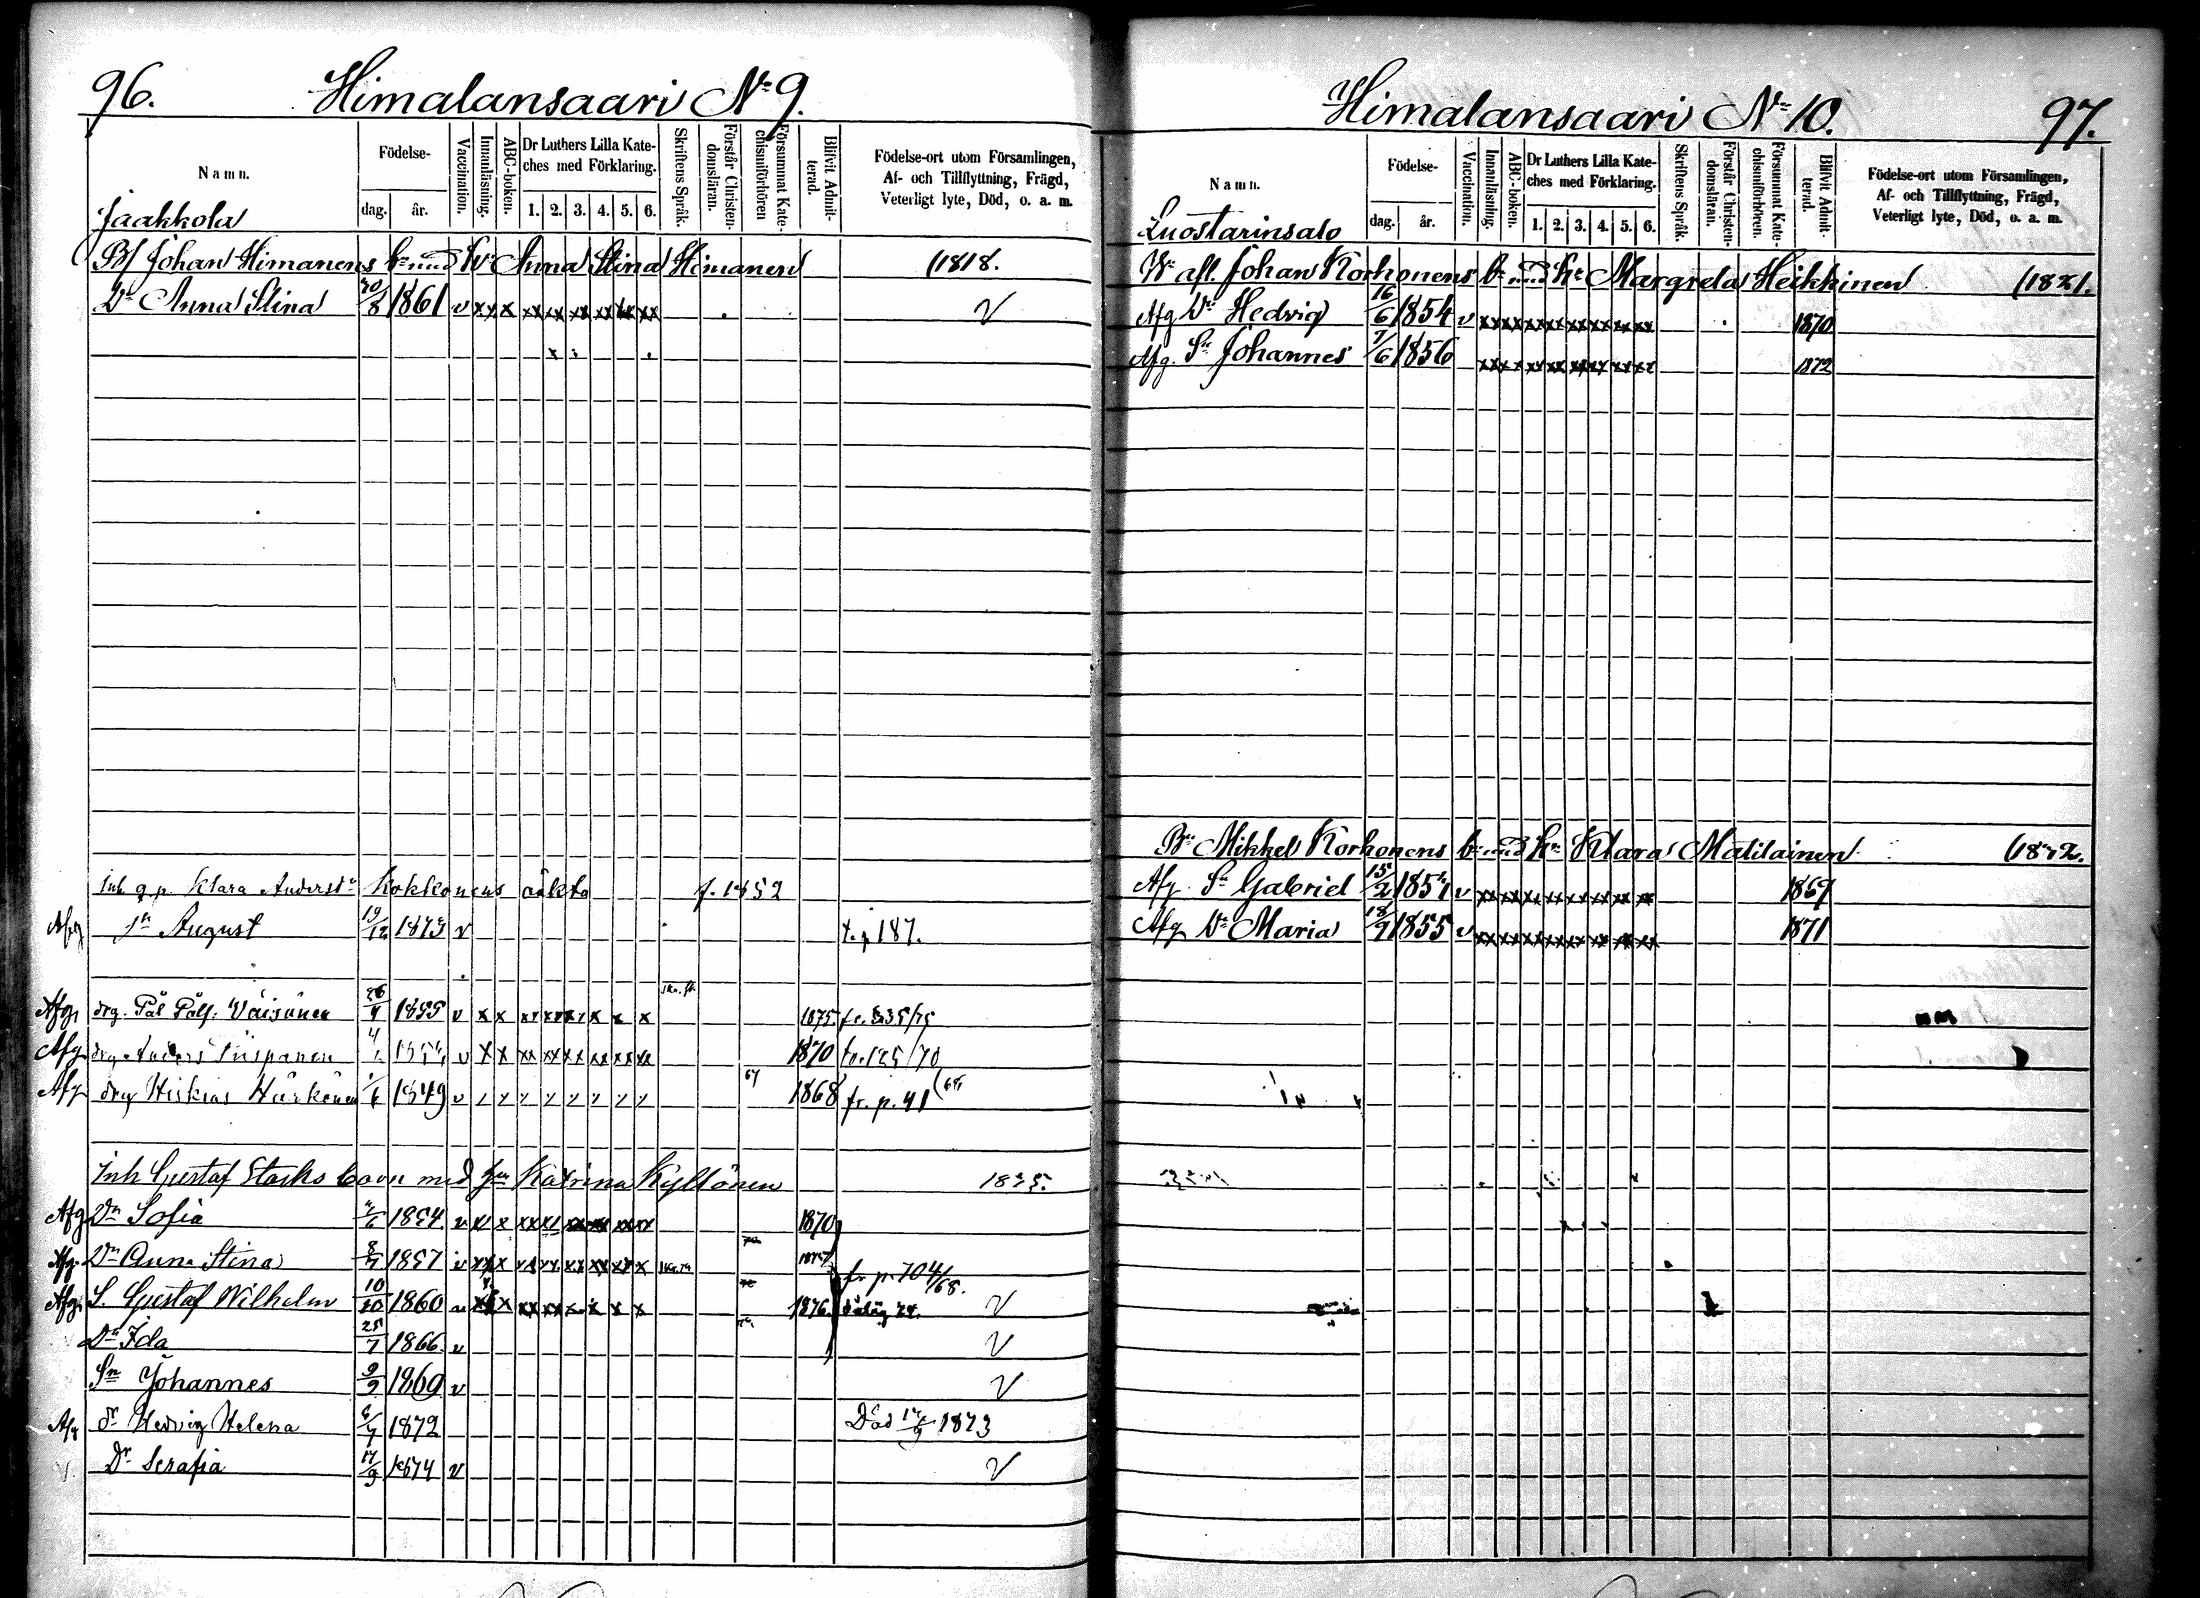 96.
Himalansaari No 9.
Namn.
Födelse-
dag. år.
Vaccination.
Innanläsning.
ABC-boken.
Dr Luthers Lilla Kate-
ches med Förklaring.
1. 2. 3. 4. 5. 6.
Skriftens Språk.
Förstår Christen-
domsläran.
Försummat Kate-
chismiförhören
Blifvit Admit-
terad.
Födelse-ort utom Församlingen,
Af- och Tillflyttning, Frägd,
Veterligt lyte, Död, o. a. m.
Jaakkola
Johan Himanens b: med Anna Stina Himanen (1818.
Dr Anna Stina 20/8 1861 v xx x xx xx xx xx xx xx v
Inh q. p. Klara Andersdr Kokkonens oäkta f. 1852
Afg Sn August 19/12 1873 v t. p 187.
Afg. drg. Pål Pålss. Väisänen 1855 v x x x x 1875.
Afg drg Anders v x x xx xx xx xx xx xx 1870 fr. 125/70
Afg drg Hiskias Härkönen 1849 v 67 1868 fr. p. 41
Inh Gustaf Starks barn med hu Katrina Kyllönen 1825.
Afg Dr Sofia 1854 v 1870
Afg. Dr Anna Stina 1857 v fr. p. 704/68.
Afg. S. Gustaf Wilhelm 10/10 1860 1876. v
Dr Ida 25/7 1866. v v
Sn Johannes 9/9 1869 v v
Afg dr Hedvig Helena 1872 Död 1873
Dr Serafia 17/9 1874 v v
Himalansaari No 10.
97.
Namn.
Födelse-
dag. år.
Vaccination.
Innanläsning.
ABC-boken.
Dr Luthers Lilla Kate-
ches med Förklaring.
1. 2. 3. 4. 5. 6.
Skriftens Språk.
Förstår Christen-
domsläran.
Försummat Kate-
chismiförhören.
Blifvit Admit-
terad.
Födelse-ort utom Församlingen,
Af- och Tillflyttning, Frägd,
Veterligt lyte, Död, o. a. m.
Luostarinsalo
afl. Johan Korhonens b: med h: Margreta Heikkinen (1821.
Afg Dr Hedvig 16/6 1854 v xx xx xx xx xx xx xx xx 1870
Afg. Sn Johannes 7/6 1856 xx xx xx xx xx xx xx xx 1872
Mikkel Korhonens b: med h: Klara Matilainen
Afg Sn Gabriel 15/2 v xx xx xx xx xx xx xx xx 1869
Afg Dr Maria 18/9 1855 v xx xx xx xx xx xx xx xx 1871